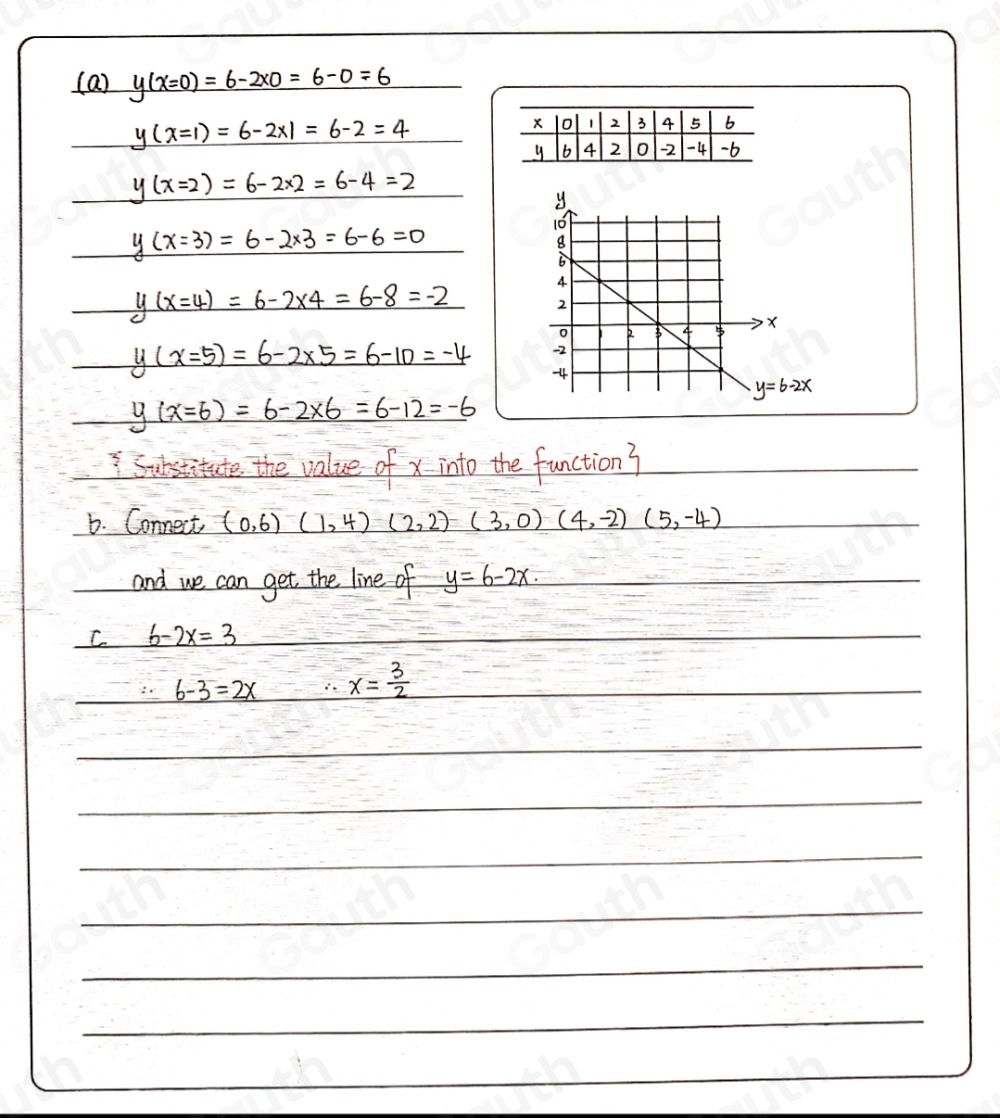 (a) y(x=0) = 6-2×0 = 6-0 = 6
y(x=1) = 6-2×1 = 6-2 = 4
y(x=2) = 6-2×2 = 6-4 = 2
y(x=3) = 6-2×3 = 6-6 = 0
y(x=4) = 6-2×4 = 6-8 = -2
y(x=5) = 6-2×5 = 6-10 = -4
y(x=6) = 6-2×6 = 6-12 = -6
x 0 1 2 3 4 5 6
y 6 4 2 0 -2 -4 -6
y
10
8
6
4
2
0 1 2 3 4 5 x
-2
-4
y=6-2x
{ Substitute the value of x into the function }
b. Connect (0,6) (1,4) (2,2) (3,0) (4,-2) (5,-4)
and we can get the line of y=6-2x.
c. 6-2x=3
∵ 6-3=2x ∴ x=3/2
Gauth